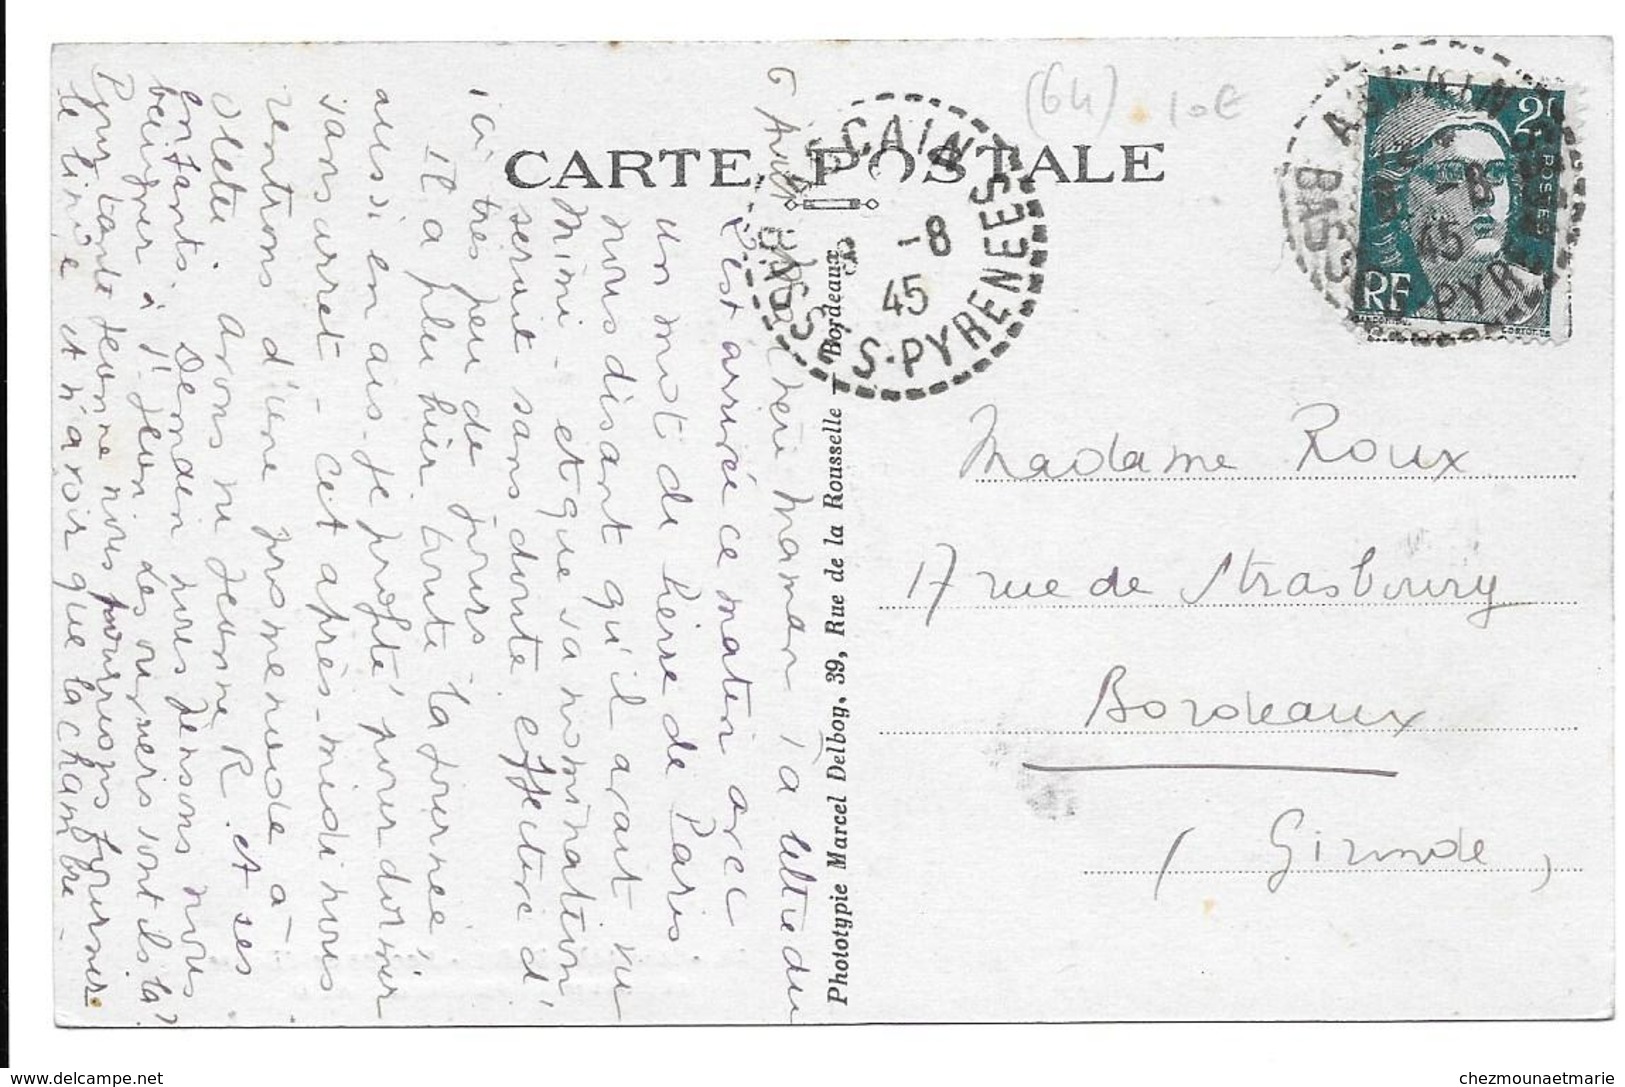 (64) 10€
CARTE POSTALE
ASCAIN
-8
45
BASSES-PYRENEES
ASCAIN
-8
45
BASSES-PYRENEES
2f
POSTES
RF
Phototypie Marcel Delboy, 39, Rue de la Rousselle — Bordeaux
Madame Roux
17 rue de Strasbourg
Bordeaux
(Gironde)
6 Août
chérie Maman Ta lettre du
est arrivée ce matin avec
un mot de Pierre de Paris
nous disant qu'il avait vu
Mimi - et que sa nomination
serait sans doute effective d'
ici très peu de jours.
Il a plu hier toute la journée
aussi en ais-je profité pour dormir
sans arrêt - Cet après-midi nous
rentrons d'une promenade à
Olette avons vu Jeanne R. et ses
enfants. Demain nous pensons nous
baigner à St Jean. Les ouvriers sont ils là?
Pour tante Jeanne nous pourrions fournir
le linge et n'avoir que la chambre -
www.delcampe.net
chezmounaetmarie